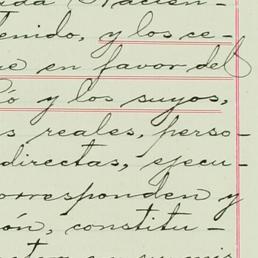 ada Nacien-
tenido, y los ce-
ue en favor del
ió y los suyos,
s reales, perso-
directas, ejecu-
orresponden y
ón, constitu-
en su mis